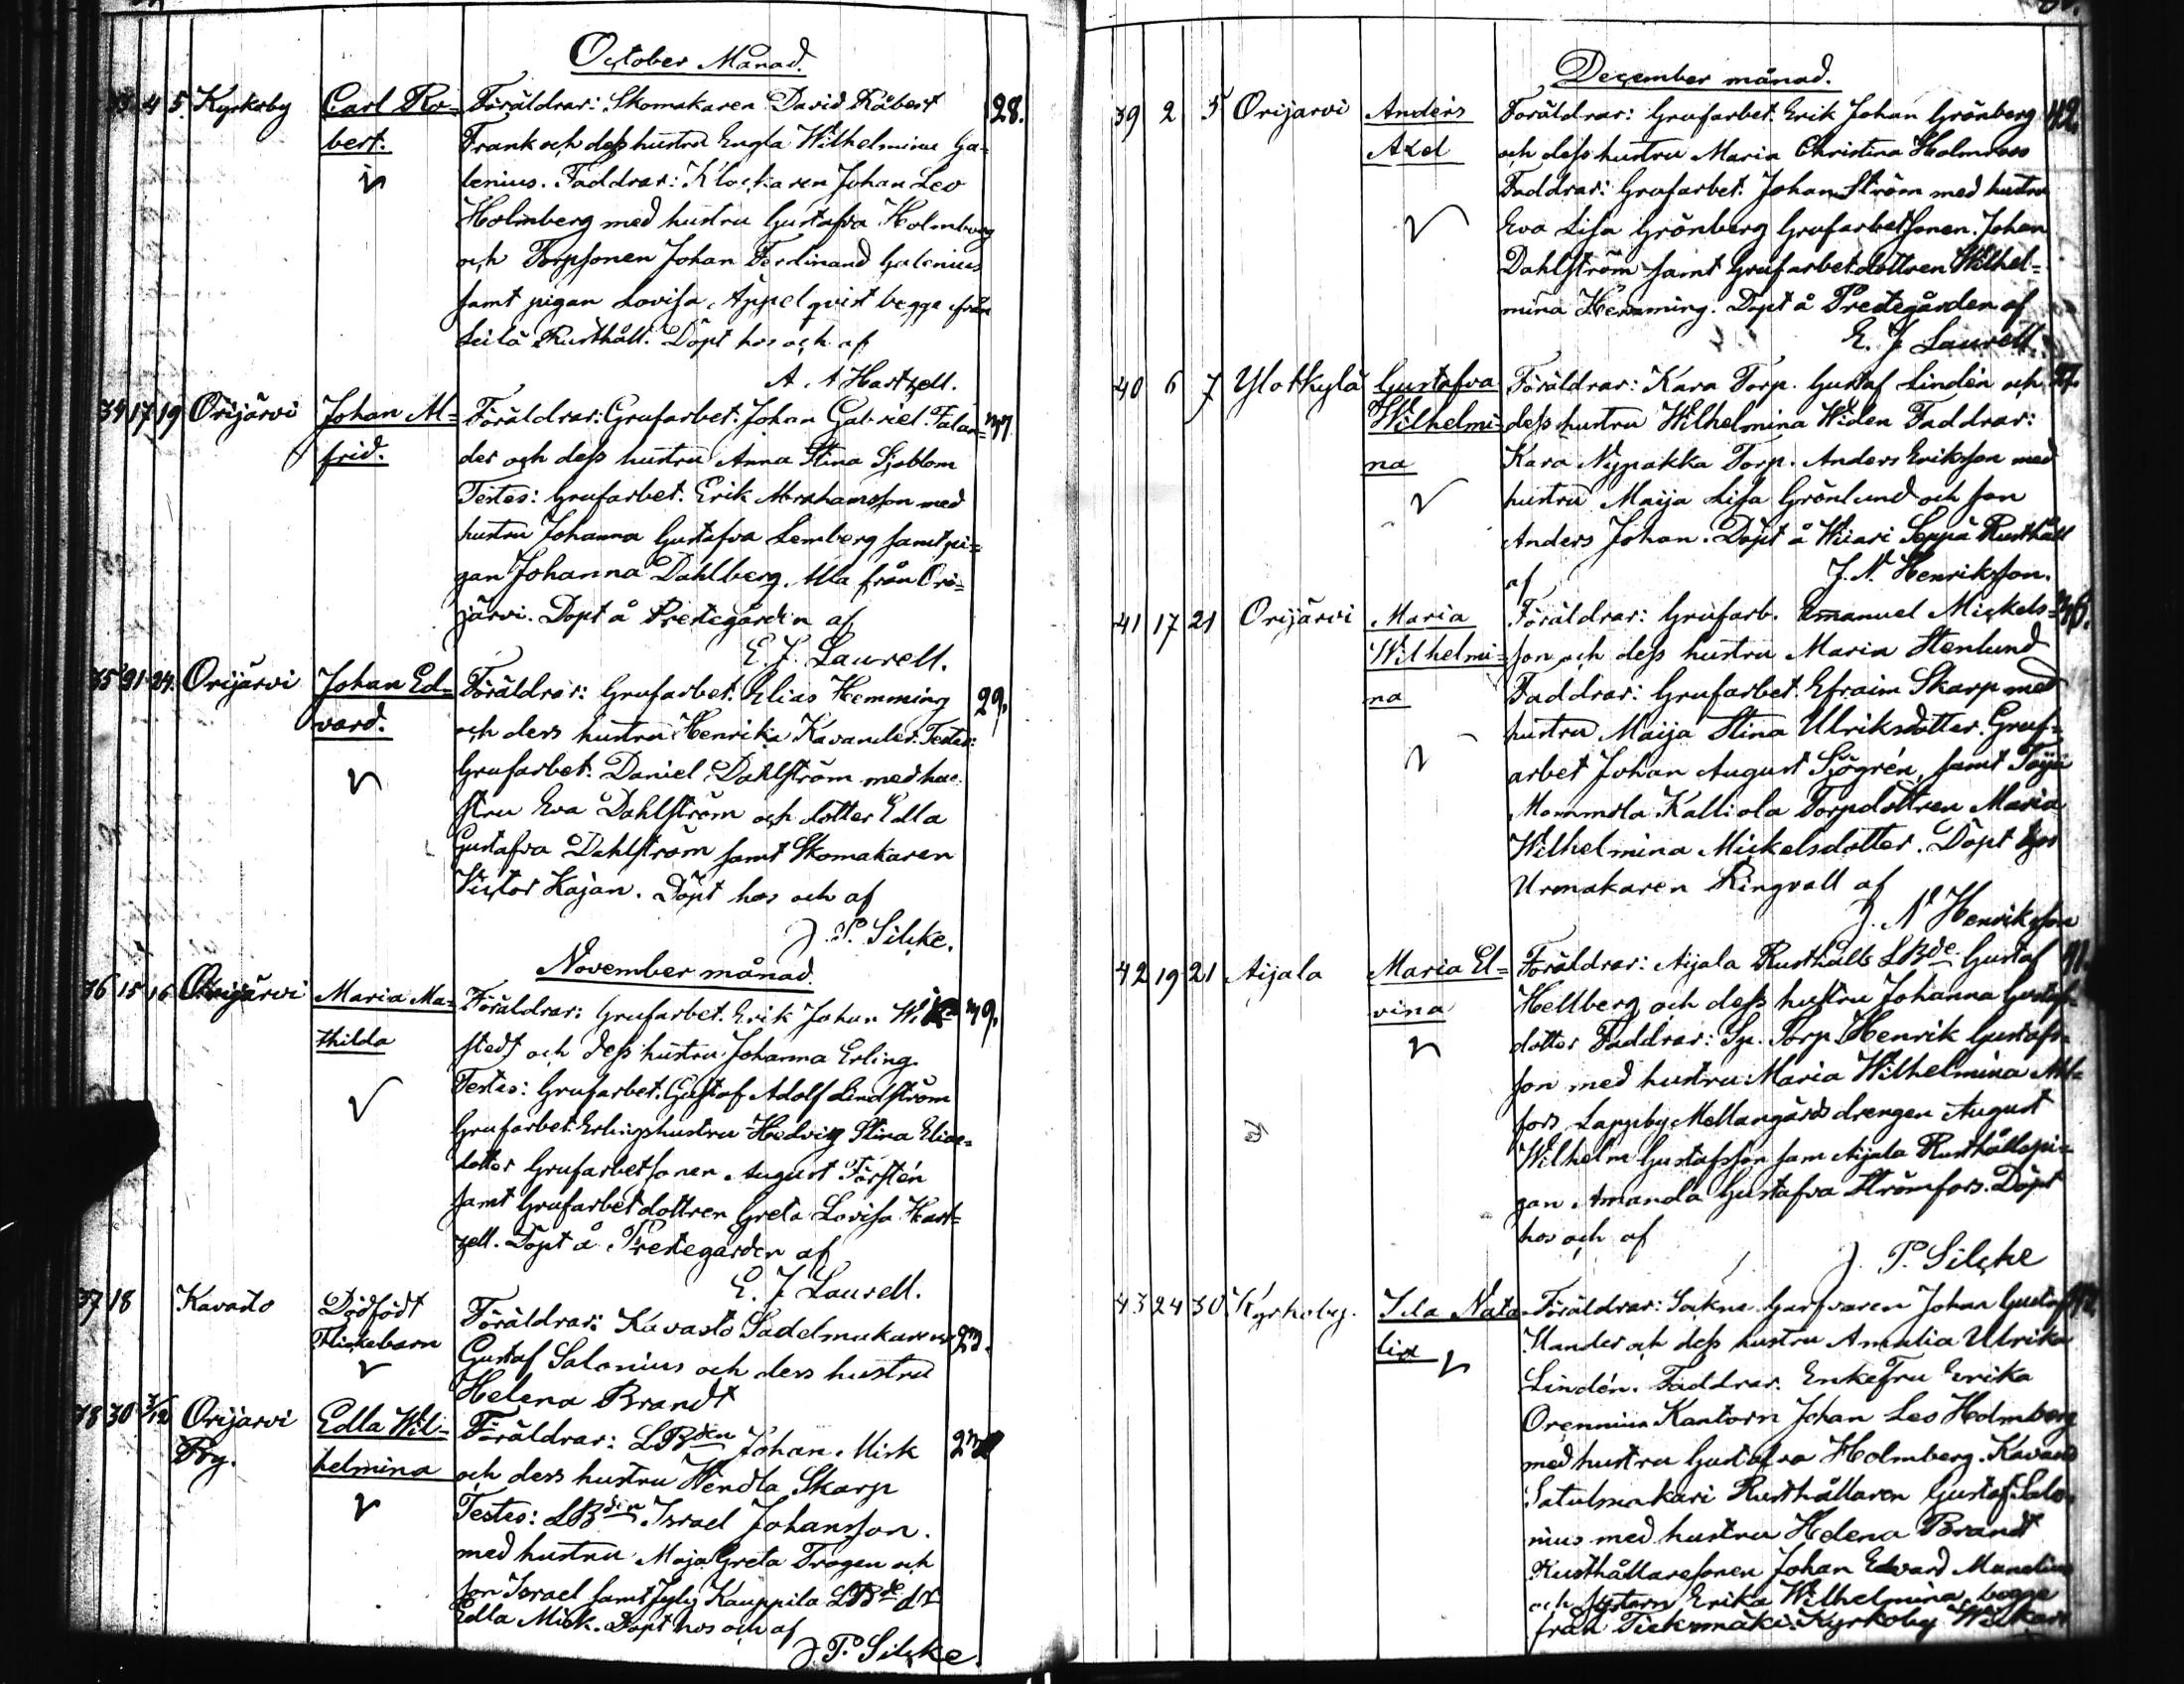 October Månad.
33 4 5. Kyrkoby Carl Ro= Föräldrar: Skomakaren David Råbert 28.
bert. Frank och dess hustru Engla Wilhelmina Ga=
lenius. Faddrar: Klockaren Johan Leo
Holmberg med hustru Gustafva Holmberg
och Torpsonen Johan Ferdinand Galenius
samt pigan Lovisa Appelqvist begge från
Leilä Rusthåll. Döpt hos och af
A. A Hartzell.
34 17 19 Orijärvi Johan Al= Föräldrar: Grufarbet. Johan Gabriel Falan=
frid. der och dess hustru Anna Stina Sjöblom
Testes: Grufarbet. Erik Abrahamsson med
hustru Johanna Gustafva Lemberg samt pi=
gan Johanna Dahlberg. Alla från Ori=
järvi. Döpt å Prestegården af
E. J. Laurell.
35 21 24. Orijärvi Johan Ed= Föräldrar: Grufarbet. Elias Hemming 29.
vard. och dess hustru Henrika Kavander. Testes:
Grufarbet. Daniel Dahlström med hu=
stru Eva Dahlström och dotter Edla
Gustafva Dahlström samt Skomakaren
Victor Kajan. Döpt hos och af
J. P. Silcke.
November månad.
36 15 16 Orijärvi Maria Ma= Föräldrar: Grufarbet. Erik Johan Wik=
thilda stedt och dess hustru Johanna Erling
Testes: Grufarbet. Gustaf Adolf Lindström
Grufarbet. Erlings hustru Hedvig Stina Elias=
dotter Grufarbetsonen August Forstén
samt Grufarbetdottren Greta Lovisa Hart=
zell. Döpt å Prestegården af
E. J Laurell.
37 18 Kavasto Dödfödt Föräldrar: Kavasto Sadelmakaren
Flickebarn Gustaf Salonius och dess hustru
Helena Brandt
38 30 3/12 Orijarvi Edla Wil= Föräldrar: LBden Johan Mick
By. helmina och dess hustru Wendla Skarp
Testes: LBden Israel Johansson.
med hustru Maja Greta Trogen och
son Israel samt Kauppila LBde dr.
Edla Mick. Döpt hos och af
J. P. Silcke.
December månad.
39 2 5 Orijarvi Anders Föräldrar: Grufarbet. Erik Johan Grönberg 42.
Axel och dess hustru Maria Christina Holmroos
Faddrar: Grufarbet. Johan Ström med hustru
Eva Lisa Grönberg Grufarbetsonen Johan
Dahlström samt Grufarbetdottren Wilhel=
mina Hemming. Döpt å Prestegården af
E. J Laurell.
40 6 7 Ylotkylä Gustafva Föräldrar: Kara Torp. Gustaf Lindén och
Wilhelmi= dess hustru Wilhelmina Widen Faddrar:
na Kara Nypakka Torp. Anders Eriksson med
hustru Maija Lisa Grönlund och son
Anders Johan. Döpt å Wiiari Seppä Rusthåll
af J. N. Henriksson.
41 17 21 Orijärvi Maria Föräldrar: Grufarb. Emanuel Mickels=
Wilhelmi= son och dess hustru Maria Stenlund
na Faddrar: Grufarbet. Efraim Skarp med
hustru Maija Stina Ulriksdotter. Gruf=
arbet Johan August Sjögrén, samt Toija
Mommola Kalliola Torpdottren Maria
Wilhelmina Mickelsdotter. Döpt hos
Urmakaren Ringvall af
J. N. Henriksson
42 19 21 Aijala Maria El= Föräldrar: Aijala Rusthålls LBde Gustaf
vina Hellberg och dess hustru Johanna Gustafs=
dotter Faddrar: Sp. Torp. Henrik Gustafs=
son med hustru Maria Wilhelmina Ahl=
fors Lappby Mellangårds drengen August
Wilhelm Gustafsson sam Aijala Rusthållspi=
gan Amanda Gustafva Strömfors. Döpt
hos och af
J. P. Silcke
43 24 30. Kyrkoby. Ida Nata= Föräldrar: Sockne Garfvaren Johan Gustaf
lia och dess hustru Amalia Ulrika
Lindén. Faddrar: EnkeFru Erika
Orenius Kantorn Johan Leo Holmberg
med hustru Gustafva Holmberg. Kavasto
Satulmakari Rusthållaren Gustaf Salo=
nius med hustru Helena Brandt
Rusthållaresonen Johan Edvard Mandelin
och systern Erika Wilhelmina, begge
från Tiekmäki Kyrkoby